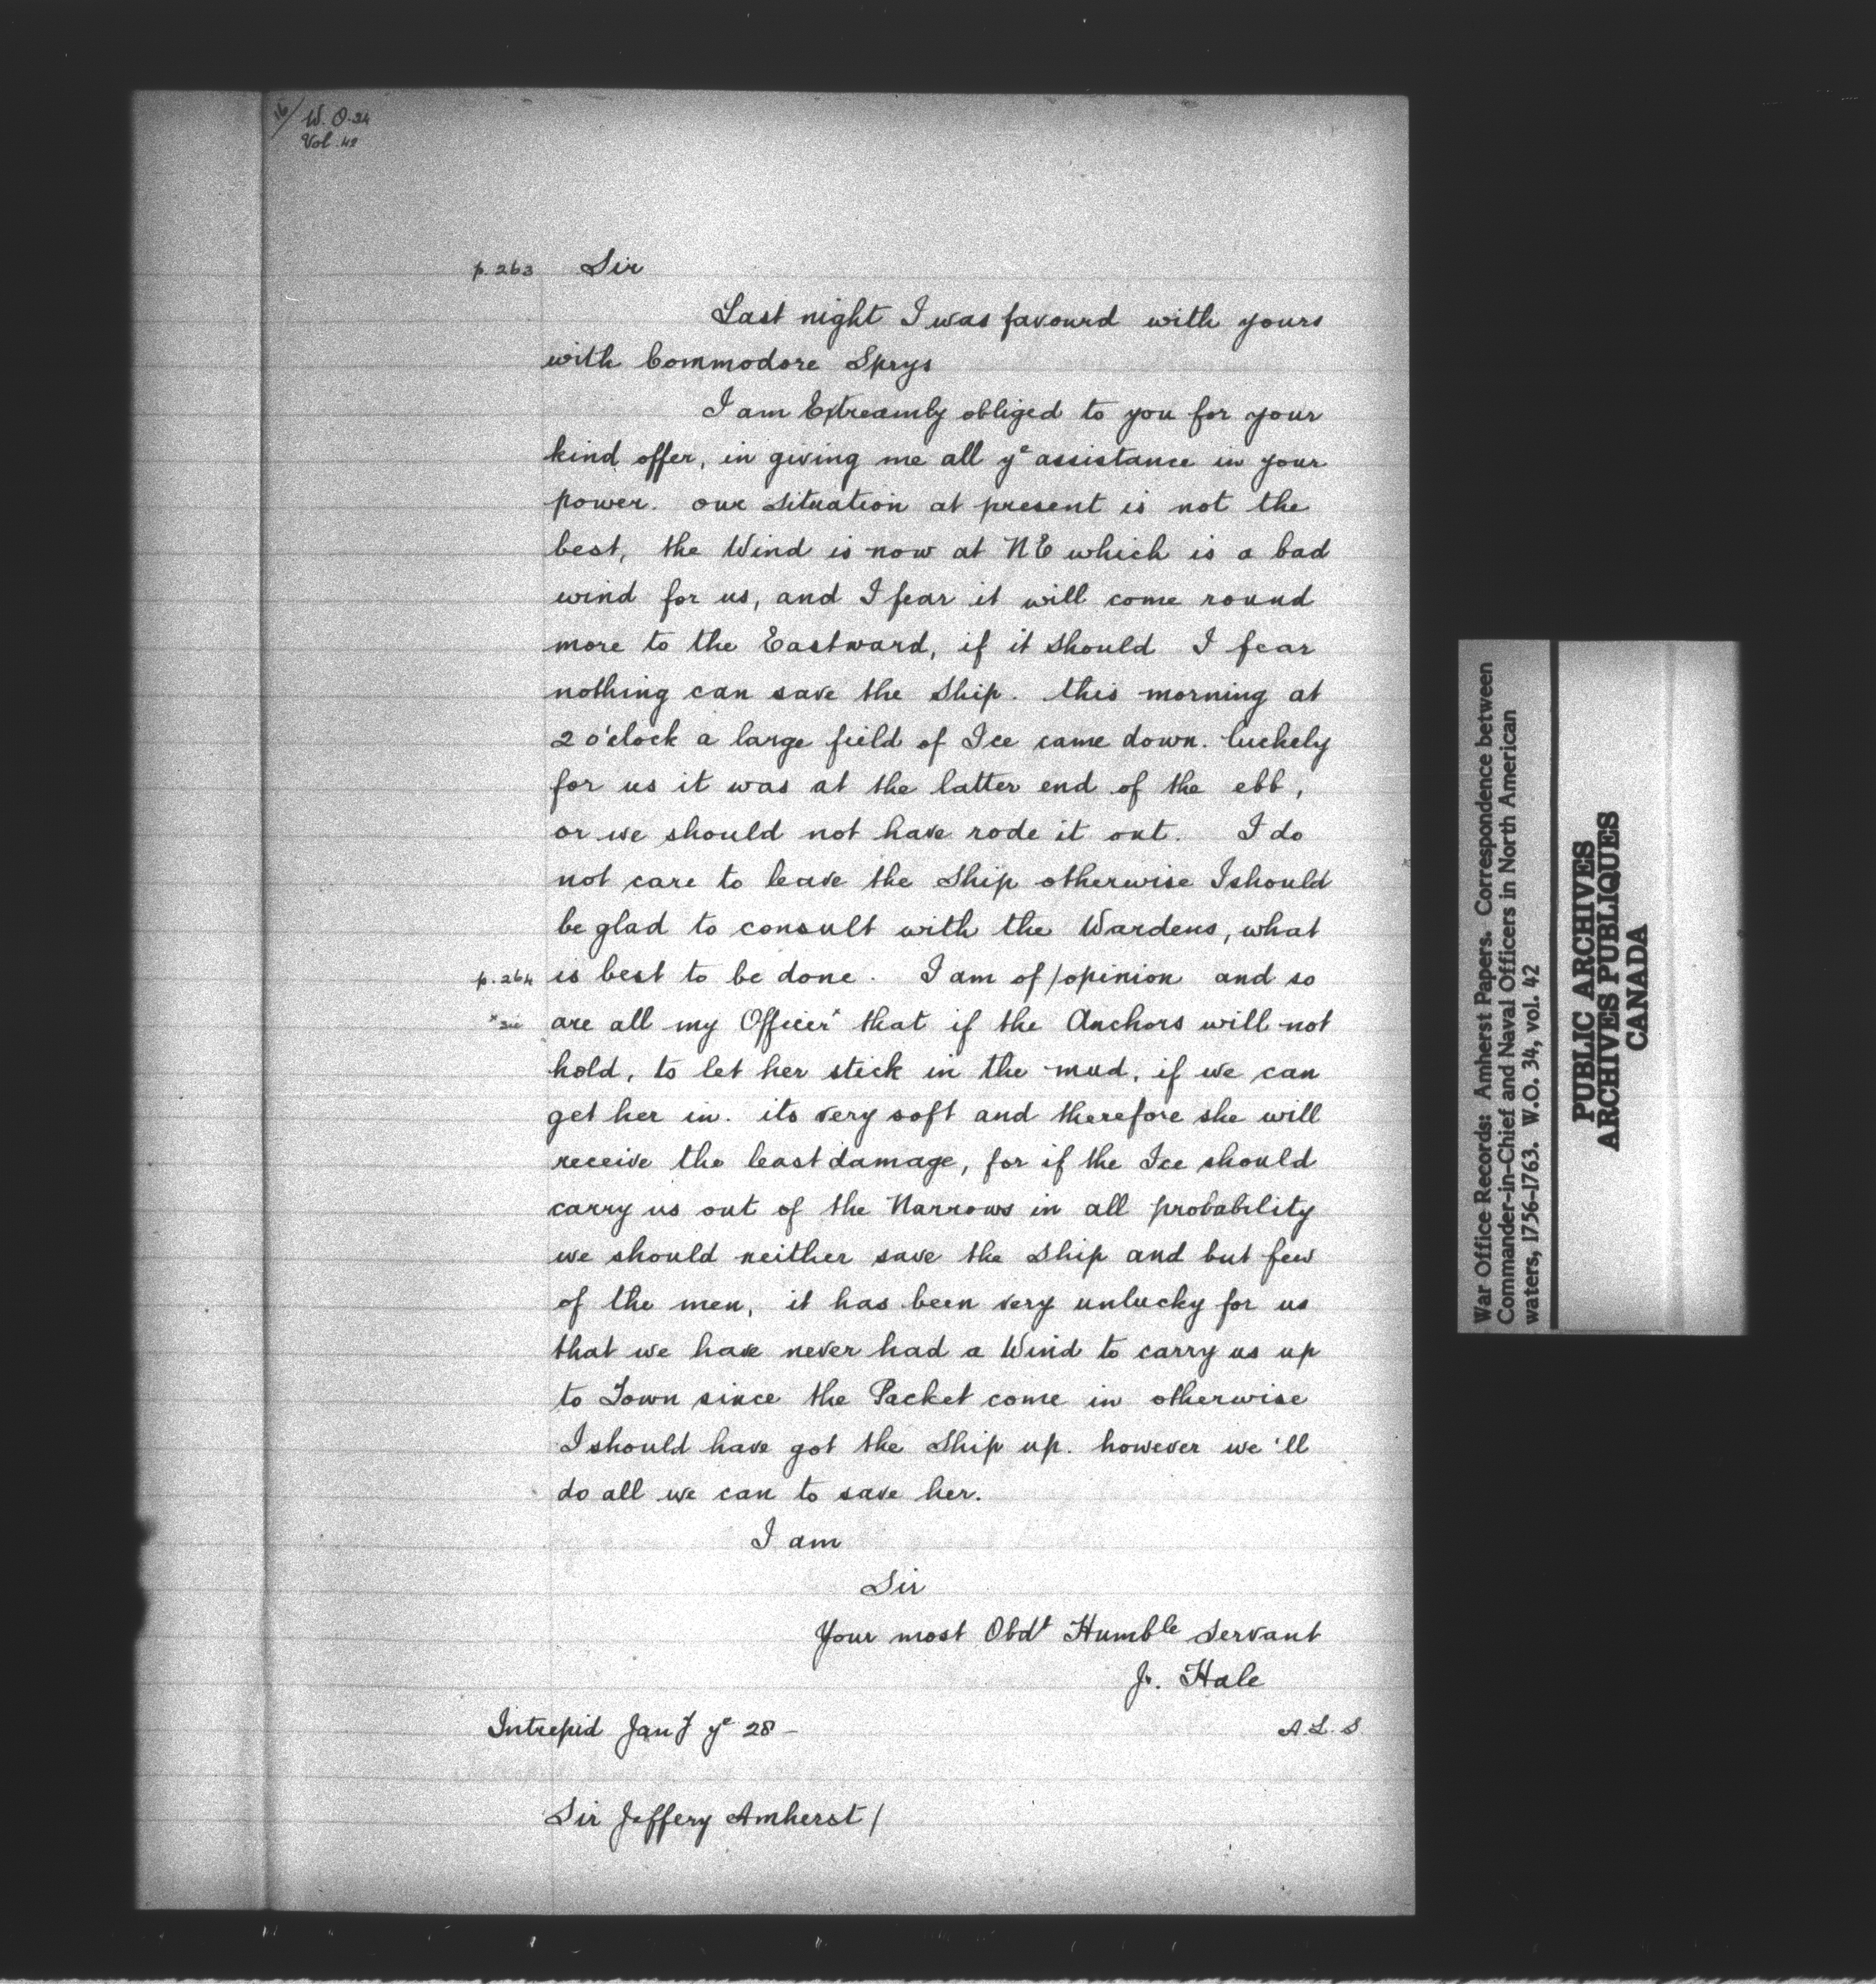 16/ W.O. 34
Vol. 42
p. 263 Sir
Last night I was favourd with yours
with Commodore Sprys
I am Extreamly obliged to you for your
kind offer, in giving me all yᵉ assistance in your
power. our situation at present is not the
best, the Wind is now at NE which is a bad
wind for us, and I fear it will come round
more to the Eastward, if it should I fear
nothing can save the Ship. this morning at
2 o'clock a large field of Ice came down. luckely
for us it was at the latter end of the ebb,
or we should not have rode it out. I do
not care to leave the Ship otherwise I should
be glad to consult with the Wardens, what
p. 264 is best to be done. I am of/opinion and so
*sic are all my Officer* that if the Anchors will not
hold, to let her stick in the mud, if we can
get her in. its very soft and therefore she will
receive the least damage, for if the Ice should
carry us out of the Narrows in all probability
we should neither save the Ship and but few
of the men, it has been very unlucky for us
that we have never had a Wind to carry us up
to Town since the Packet come in otherwise
I should have got the Ship up. however we'll
do all we can to save her.
I am
Sir
Your most Obdᵗ Humbˡᵉ Servant
Jn. Hale
Intrepid Janʸ yᵉ 28 –
A.L.S.
Sir Jeffery Amherst/
War Office Records: Amherst Papers. Correspondence between
Commander-in-Chief and Naval Officers in North American
waters, 1756-1763. W.O. 34, vol. 42
PUBLIC ARCHIVES
ARCHIVES PUBLIQUES
CANADA